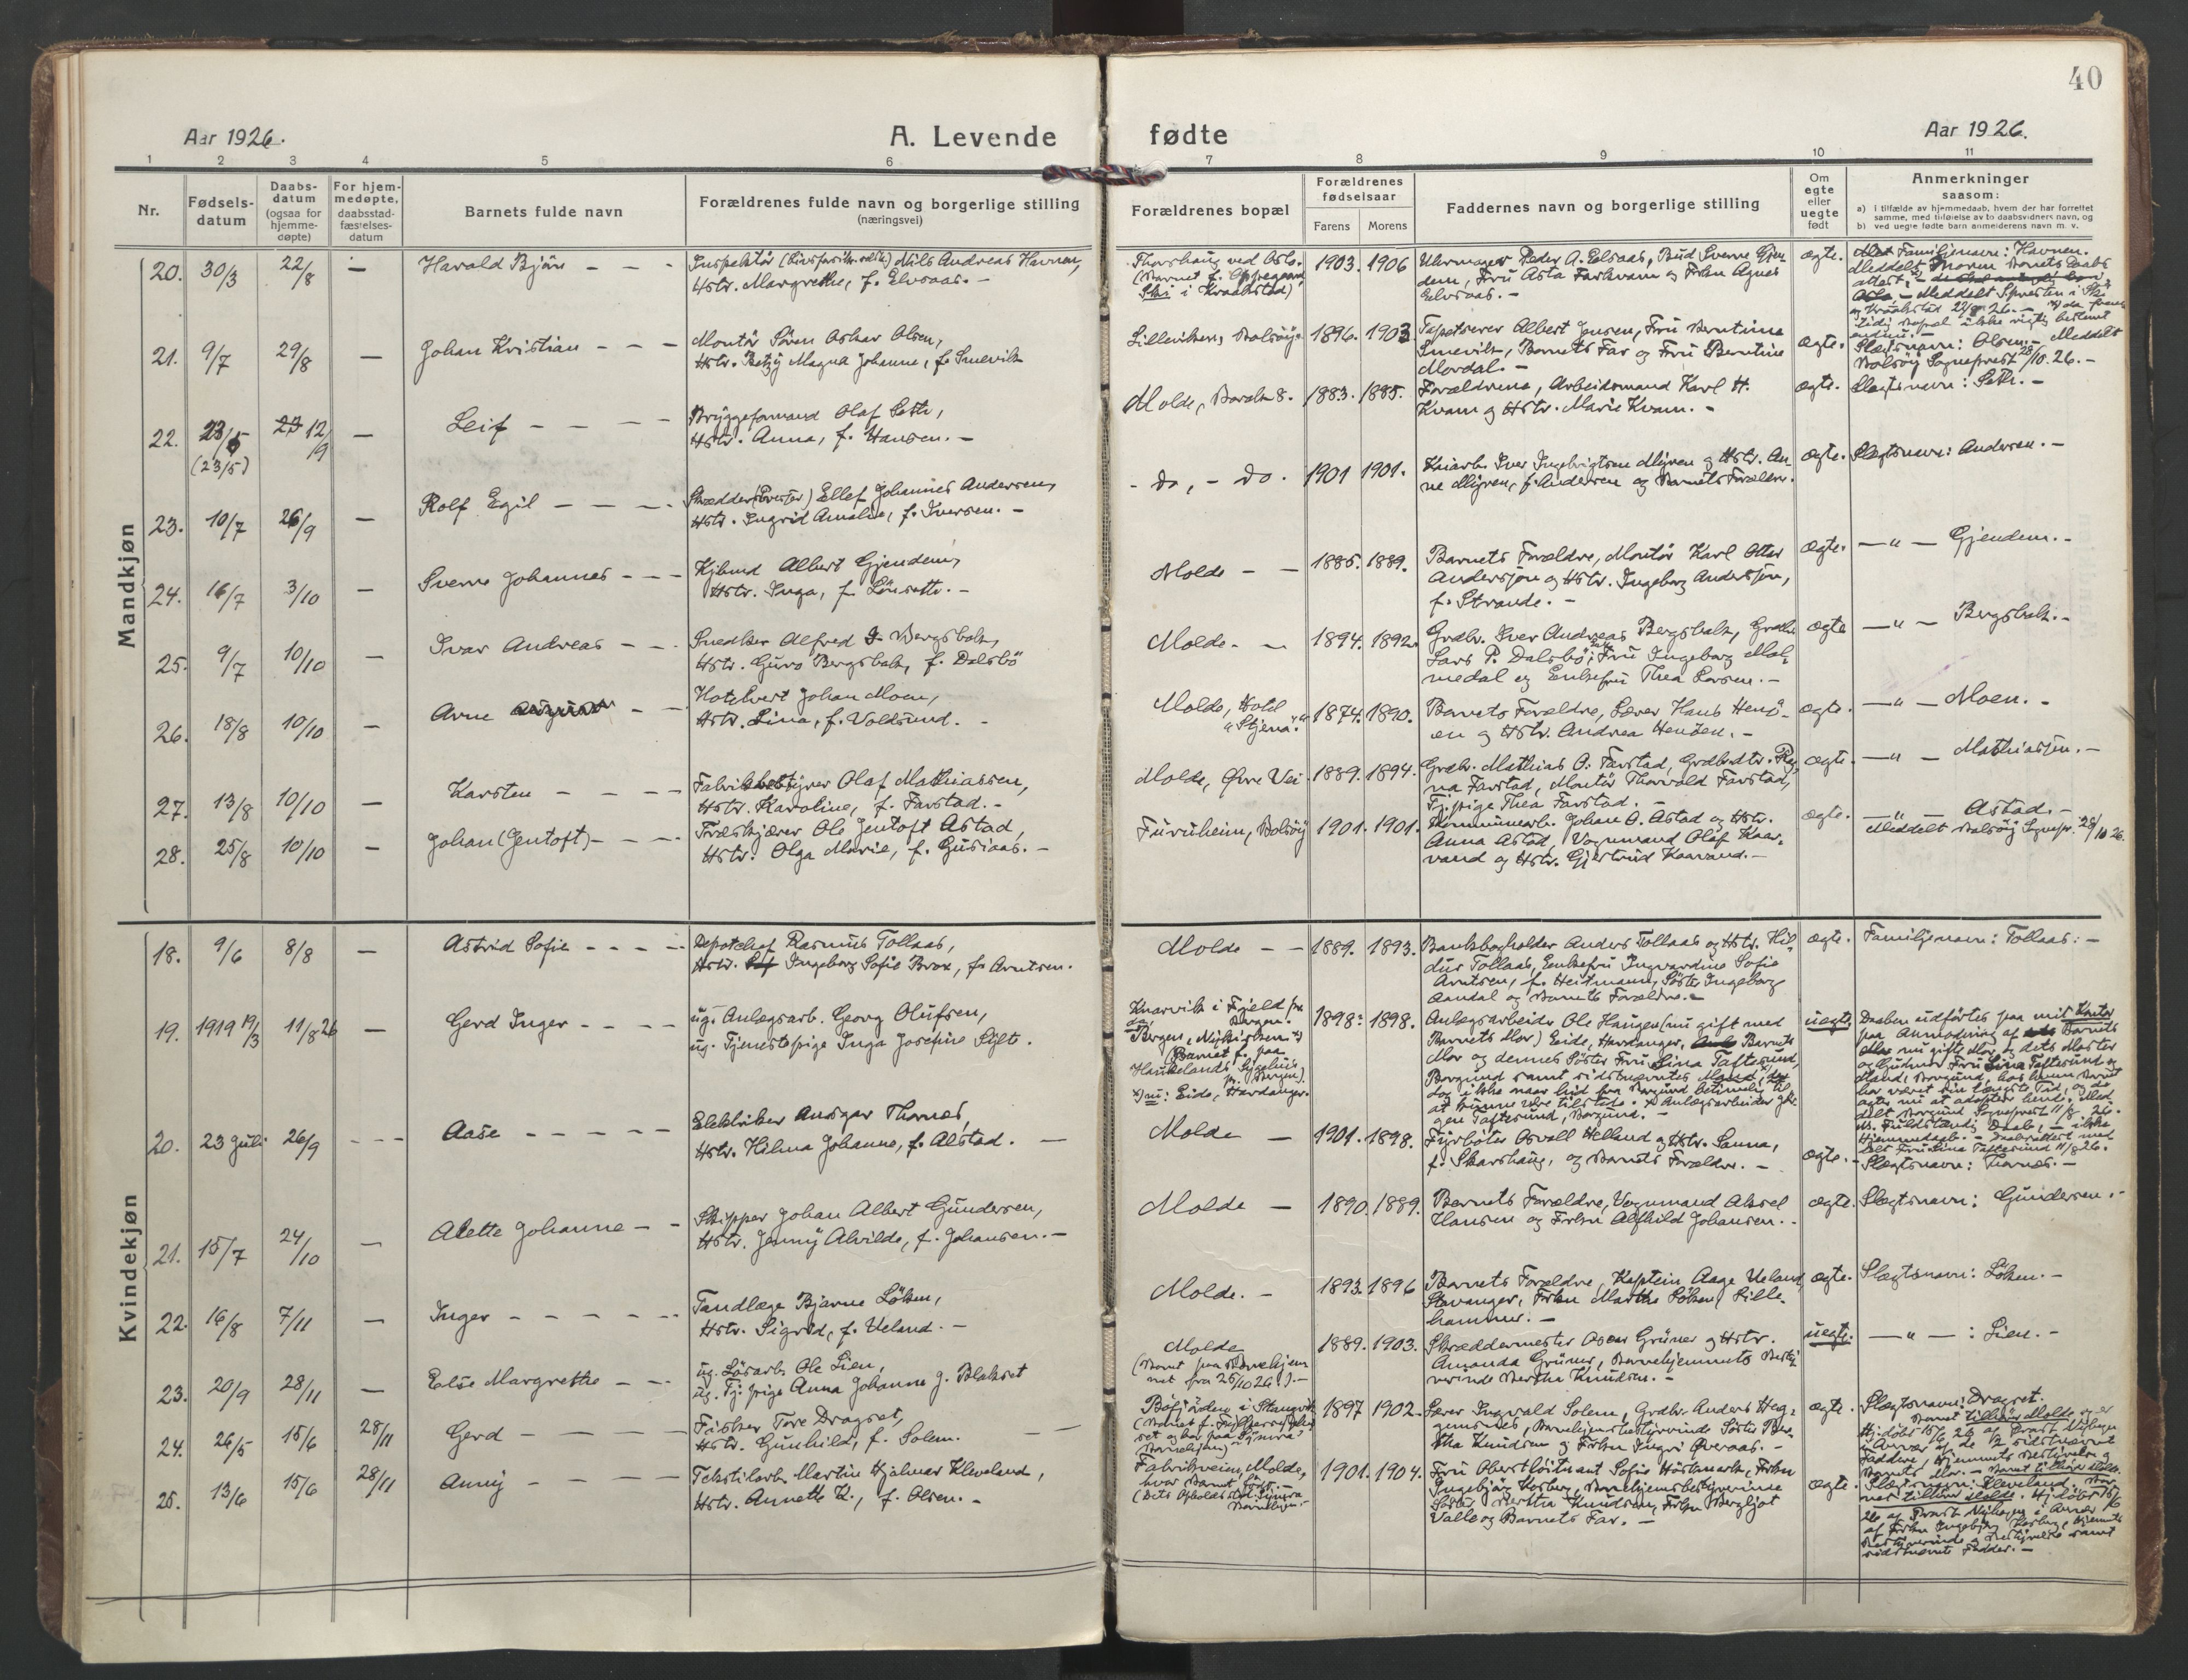 40
Aar 1926.
A. Levende
fødte
Aar 1926.
1 2 3 4 5 6 7 8 9 10 11
Nr.
Fødsels-
datum
Daabs-
datum
(ogsaa for
hjemme-
døpte)
For hjem-
medøpte,
daabsstad-
fæstelses-
datum
Barnets fulde navn
Forældrenes fulde navn og borgerlige stilling
(næringsvei)
Forældrenes bopæl
Forældrenes
fødselsaar
Farens Morens
Faddernes navn og borgerlige stilling
Om
egte
eller
uegte
født
Anmerkninger
saasom:
a) i tilfælde av hjemmedaab, hvem der har forrettet
samme, med tilføielse av to daabsvidners navn, og
b) ved uegte fødte barn anmelderens navn m. v.
Mandkjøn
20. 30/3 22/8 —
Harald Bjørn - - -
Nils Andreas Havnen,
Hstr. Margrethe, f. Elvsaas. -
Thorshaug ved Oslo.
Ski i Kraakstad)
1903. 1906
Uhrmager Peder A. Elvsaas, Sverre Gjen-
dem, Fru Asta Farkvam og Frkn Agnes
Elvsaas. -
ægte.
Familjenavn: Havnen.
21. 9/7 29/8 —
Johan Kristian - - -
Montør Søren Oskar Olsen,
Hstr. Betzy Magna Johanne, f. Smevik
Lilleviken, Bolsøy.
1896. 1903
Tapetserer Albert Jensen, Fru Berntine
Smevik, Barnets Far og Fru Berntine
Mordal. -
ægte.
Slægtsnavn: Olsen. - Meddelt
Bolsøy Sogneprest 28/10. 26. -
22. 23/5 12/9 —
(23/5)
Leif - - - -
Bryggeformand Olaf Seth,
Hstr. Anna, f. Hansen. -
Molde, 8.
1883. 1885.
Forældrene, Arbeidsmand Karl H.
Kvam og Hstr. Marie Kvam. -
ægte.
Slægtsnavn: Seth. -
23. 10/7 26/9 —
Rolf Egil - - -
Ellef Johannes Andersen,
Hstr. Ingrid Amalie, f. Iversen. -
- do, - do.
1901 1901.
Iver Ingebrigtsen Myren og Hstr. An-
ne Myren, f. Andersen og Barnets Forældre.
ægte.
Slægtsnavn: Andersen. -
24. 16/7 3/10 —
Sverre Johannes - - -
Kjbmd Albert Gjendem,
Hstr. Inga, f. Lønseth. -
Molde - -
1885. 1889.
Barnets Forældre, Montør Karl Ottar
Andersson og Hstr. Ingeborg Andersson,
f. Strande. -
ægte.
— " — Gjendem. -
25. 9/7 10/10 —
Ivar Andreas - - -
Snedker Alfred Bergsbak,
Hstr. Guro Bergsbak, f. Dalsbø
Molde. -
1894. 1892.
Grdbr. Iver Andreas Bergsbak, Grdbr.
Lars P. Dalsbø, Fru Ingeborg Mal-
medal og Enkefru Thea Larsen. -
ægte
— " — Bergsbak. -
26. 18/8 10/10 —
Arne - -
Hotelvert Johan Moen,
Hstr. Lina, f. Voldsund. -
Molde, Hotel
"Stjerna".
1874. 1890.
Barnets Forældre, Lærer Hans Henø-
en og Hstr. Andrea Henøen. -
ægte.
— " — Moen. -
27. 13/8 10/10 —
Karsten - - - -
Fabrikbestyrer Olaf Mathiassen,
Hstr. Karoline, f. Farstad. -
Molde, Øvre Vei
1889. 1894.
Grdbr. Mathias O. Farstad, Grdbrdtr. Rag-
na Farstad, Montør Thorvald Farstad,
Tj.pige Thea Farstad. -
ægte.
— " — Mathiassen. -
28. 25/8 10/10 —
Johan (Gentoft) - - -
Træskjærer Ole Jentoft Astad,
Hstr. Olga Marie, f. Gusiaas. -
Furuheim, Bolsøy
1901. 1901.
Johan O. Astad og Hstr.
Anna Astad, Vognmand Olaf Kaar-
vand og Hstr. Gjertrud Kaarvand. -
ægte.
— " — Astad. -
Meddelt Bolsøy Sognepr. 28/10 26.
Kvindekjøn
18. 9/6 8/8 —
Astrid Sofie - - - -
Depotchef Rasmus Tollaas,
Hstr. Ingeborg Sofie Brox, f. Arntsen.
Molde - -
1889. 1893.
Bankbogholder Anders Tollaas og Hstr. Hil-
dur Tollaas, Enkefru Ingvardine Sofie
Arntsen, f. Heitmann, Søster Ingeborg
Aandal og Barnets Forældre. -
ægte.
Familjenavn: Tollaas: -
19. 1919 19/3 11/8 26 —
Gerd Inger - - - -
ug. Anlægsarb. Georg Olufsen,
ug. Tjenestepige Inga Josefine Sylt.
Knarvik i Fjeld
Bergen,
Barnet f. paa
Haukelands Sygehus,
Bergen).
x) nu: Eide, Hardanger.
1898: 1898.
Anlægsarbeider Ole Haugen (nu gift med
Barnets Mor) Eide, Hardanger, Barnets
Mor og dennes Søster Fru Lina Taftesund,
Borgund samt sidstnævntes Mand,
Taftesund, Borgund. -
uegte
Daaben udførtes paa mit Kontor
paa Anmodning af Barnets
nu gifte Mor og dets Moster
og Gudmor Fru Lina Taftesund og
20. 23 Juli 26/9 - - -
Aase - - - - -
Elektriker Ansgar Thornes,
Hstr. Hilma Johanne, f. Alstad. -
Molde -
1901. 1898.
Fyrbøter Osvall Helland og Hstr. Sanna,
f. Skarshaug, og Barnets Forældre. -
ægte. -
Slægtsnavn: Thornes. -
21. 15/7 24/10 —
Alette Johanne - -
Skipper Johan Albert Gundersen,
Hstr. Jenny Alvilde, f. Johansen. -
Molde -
1890. 1889.
Barnets Forældre, Vognmand Aksel
Hansen og Frkn Alfhild Johansen. -
ægte.
Slægtsnavn: Gundersen. -
22. 16/8 7/11 —
Inger - - - - -
Tandlæge Bjarne Løken,
Hstr. Sigrid, f. Ueland. -
Molde. -
1893. 1896
Barnets Forældre, Kaptein Aage Ueland,
Stavanger, Frkn Martha Løken, Lille-
hammer. -
ægte.
Slægtsnavn: Løken. -
23. 20/9 28/11 —
Else Margrethe - -
ug. Løsarb. Ole Lien,
ug. Tj.pige Anna Johanne J. Blakset
Molde
(Barnet paa Barnehjem-
met fra 25/10 26.). -
1889. 1903.
Skræddermester Oscar Grüner og Hstr.
Amanda Grüner, Barnehjemmets Besty-
rerinde Bertha Knudsen. -
uegte.
— " — : Lien. -
24. 26/5 15/6 28/11
Gerd - - - -
Fisker Tore Dragset,
Hstr. Gunhild, f. Solem. -
Bøfjorden i Stangvik
1897 1902.
Lærer Ingvald Solem, Grdbr. Anders Hag-
Barnehjemsbestyrerinde Søster Ber-
tha Knudsen og Frkn Ingri Øveraas. -
ægte.
Slægtsnavn: Dragset.
Barnet tilhører Molde
25. 13/6 15/6 28/11
Anny - - - -
Tekstilarb. Martin Hjalmar Kleveland,
Hstr. Annette K., f. Olsen. -
Fabrikveien, Molde,
hvor Barnet født. -
1901. 1904.
Fru Oberstløitnant Sofie Hørkmark, Frkn
Ingebjørg Korberg, Barnehjemsbestyrerinde
Søster Bertha Knudsen, Frkn Bergljot
Valle og Barnets Far. -
ægte.
Slægtsnavn: Kleveland. Bar-
net tilhører Molde.
sidstnævnte Fadder. -